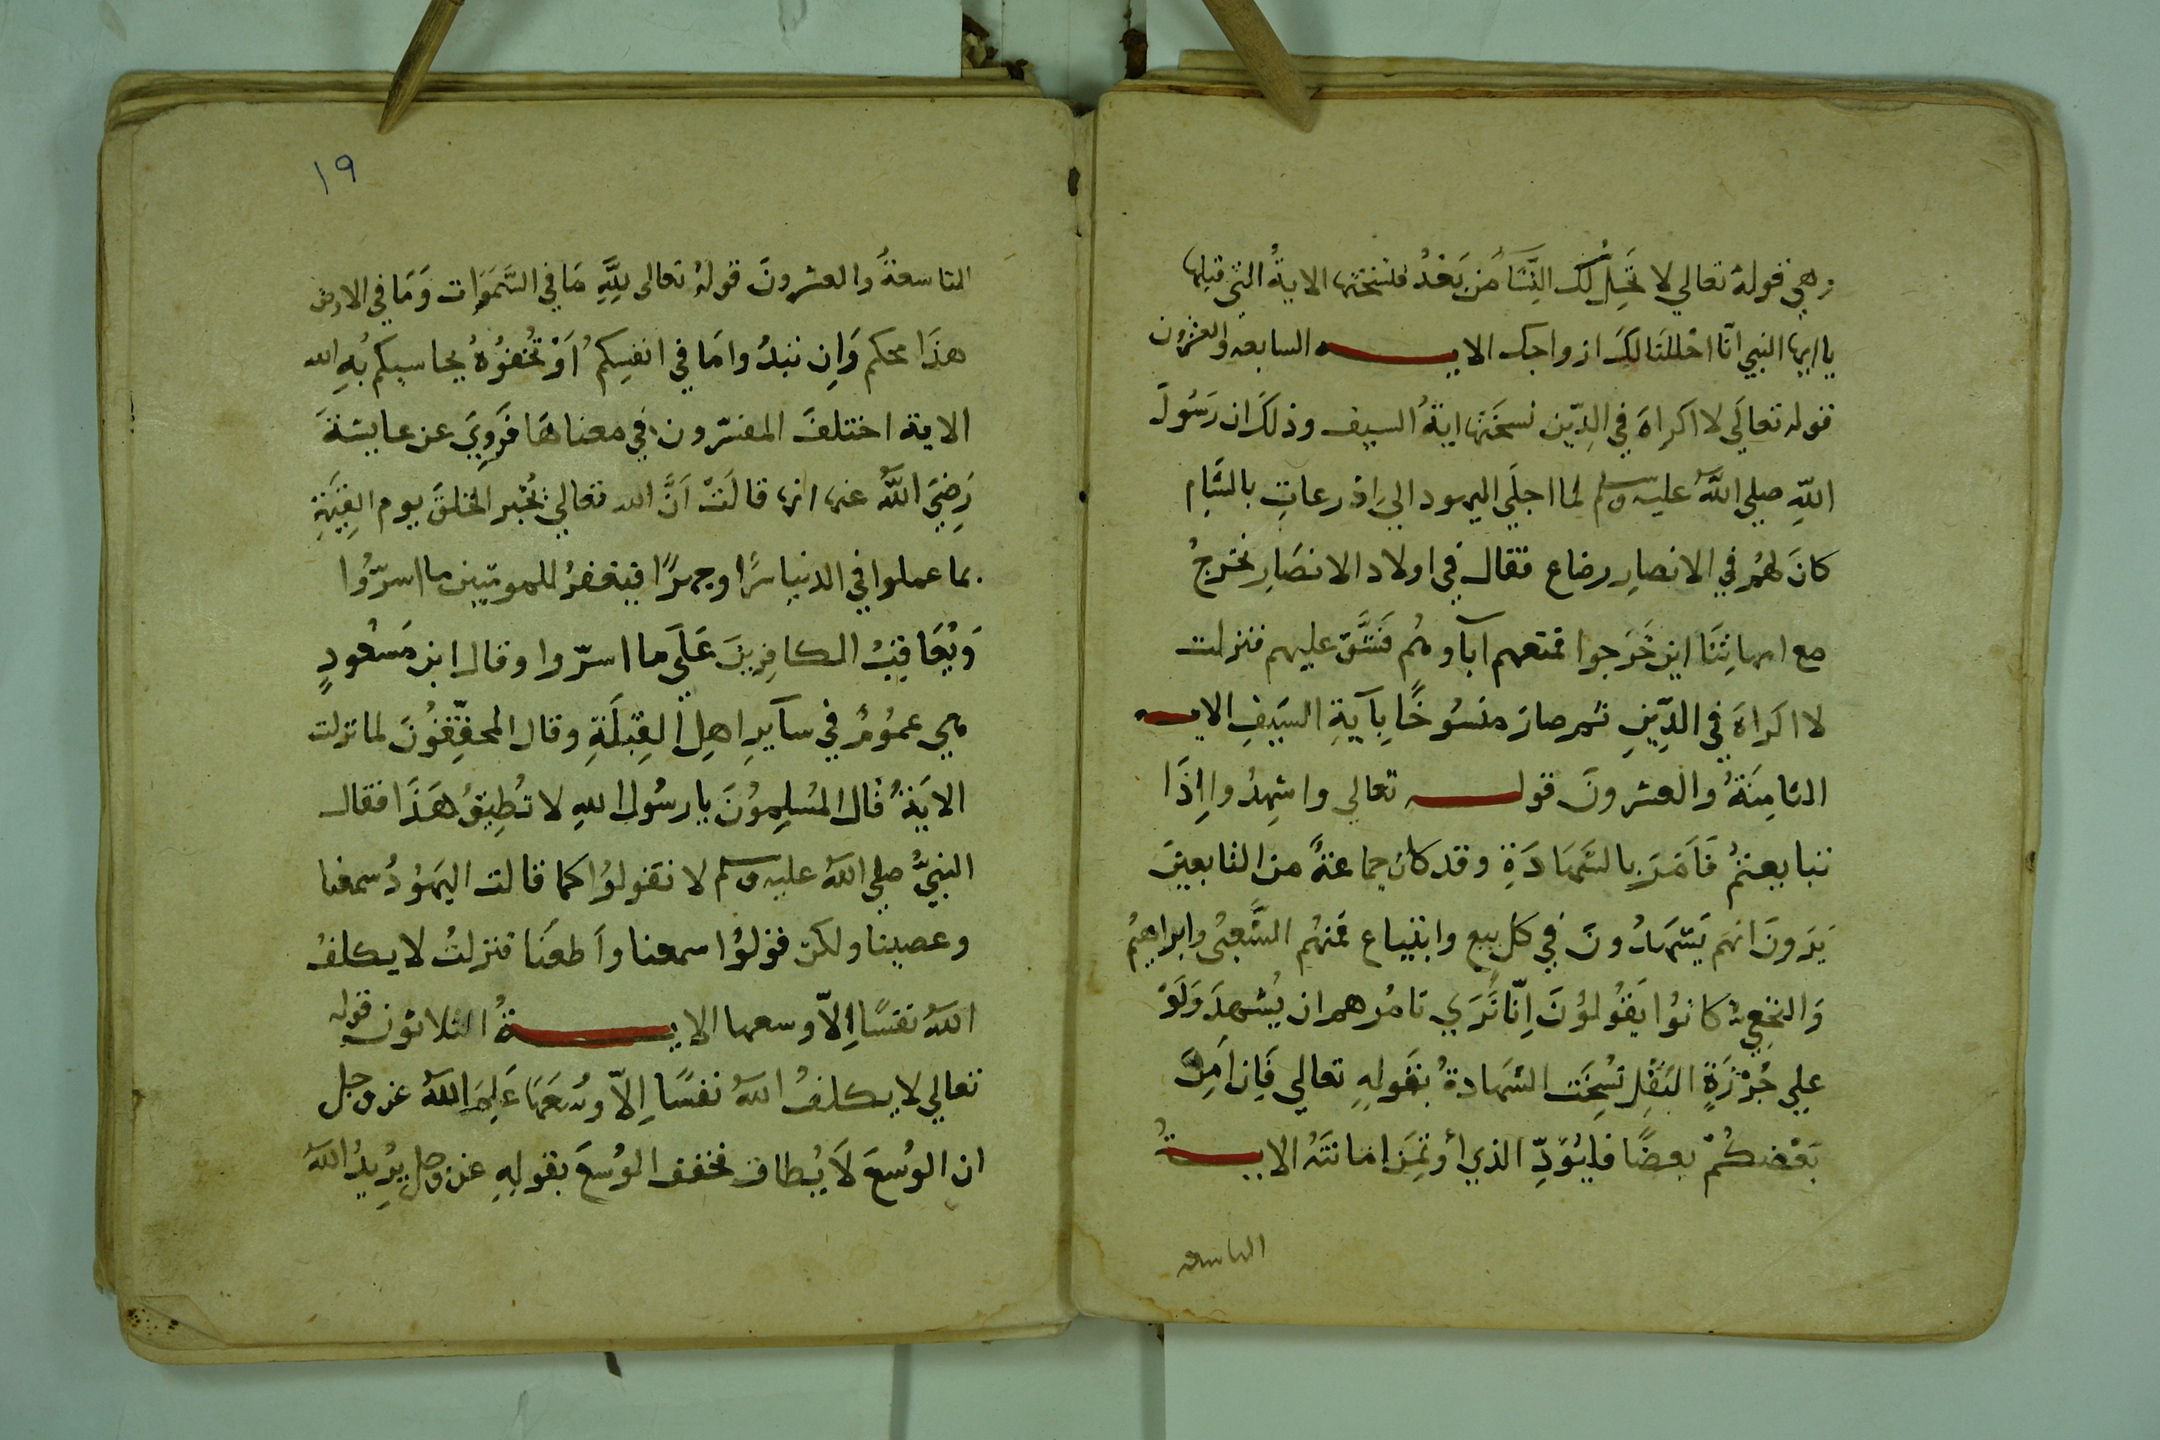 وهي قوله تعالي لا تحل لك النسآء من بعد فنسختها الاية التي قبلها
يا ايها النبي انا احللنا لك ازواجك الايه السابعه والعشرون
قوله تعالي لا اكراه في الدين نسختها اية السيف وذلك ان رسول
الله صلي الله عليه وسلم لما اجلي اليهود الي اذرعات بالشام
كان لهم في الانصار رضاع فقال في اولاد الانصار نخرج
مع امهاتنا اين خرجوا فمنعهم آباوهم فشق عليهم فنزلت
لا اكراه في الدين ثم صار منسوخا بآية السيف الايه
الثامنة والعشرون قوله تعالي واشهدوا اذا
تبايعتم فامر بالشهادة وقد كان جماعة من التابعين
يرون انهم يشهدون في كل بيع وابتياع فمنهم الشعبي وابراهيم
والنخعي كانوا يقولون انا نري نامرهم ان يشهد ولو
علي جرزة البقل نسخت الشهادة بقوله تعالي فان امن
بعضكم بعضا فليؤد الذي أوتمن امانته الاية
التاسعه
١٩
التاسعة والعشرون قوله تعالى لله ما في السموات وما في الارض
هذا محكم وان تبدوا ما في انفسكم او تخفوه يحاسبكم به الله
الاية اختلف المفسرون في معناها فروي عن عايشة
رضي الله عنها انها قالت ان الله تعالي يخبر الخلق يوم القيمة
بما عملوا في الدنيا سرا وجهرا فيغفر للمومنين ما اسروا
ويعاقب الكافرين علي ما اسروا وقال ابن مسعود
هي عموم في سآير اهل القبلة وقال المحققون لما نزلت
الاية قال المسلمون يا رسول الله لا نطيق هذا فقال
النبي صلي الله عليه وسلم لا تقولوا كما قالت اليهود سمعنا
وعصينا ولكن قولوا سمعنا واطعنا فنزلت لا يكلف
الله نفسا إلا وسعها الاية الثلاثون قوله
تعالي لا يكلف الله نفسا إلا وسعها علم الله عز وجل
ان الوسع لا يطاق فخفف الوسع بقوله عز وجل يريد الله